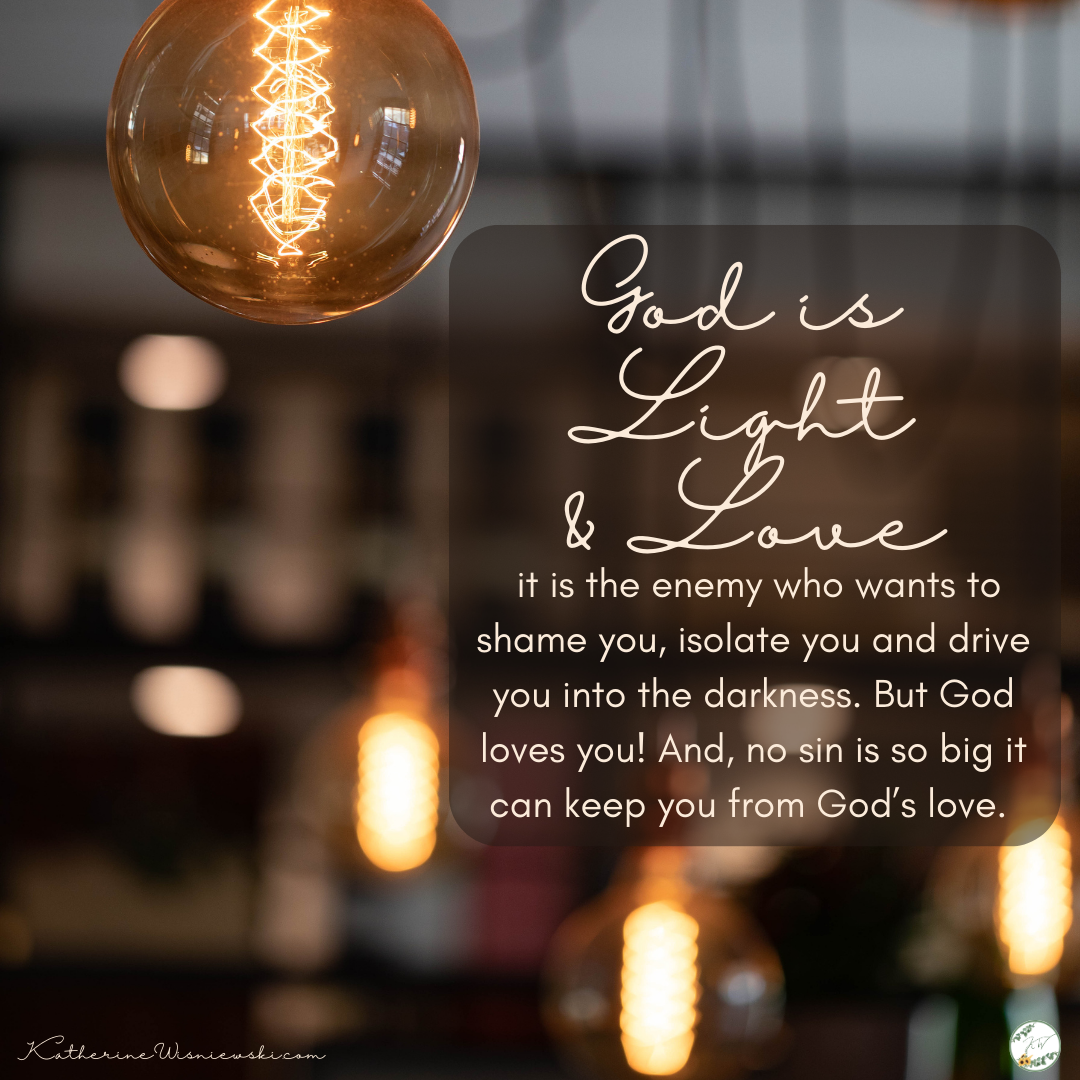 God is
Light
& Love
it is the enemy who wants to
shame you, isolate you and drive
you into the darkness. But God
loves you! And, no sin is so big it
can keep you from God’s love.
KatherineWisniewski.com
KW